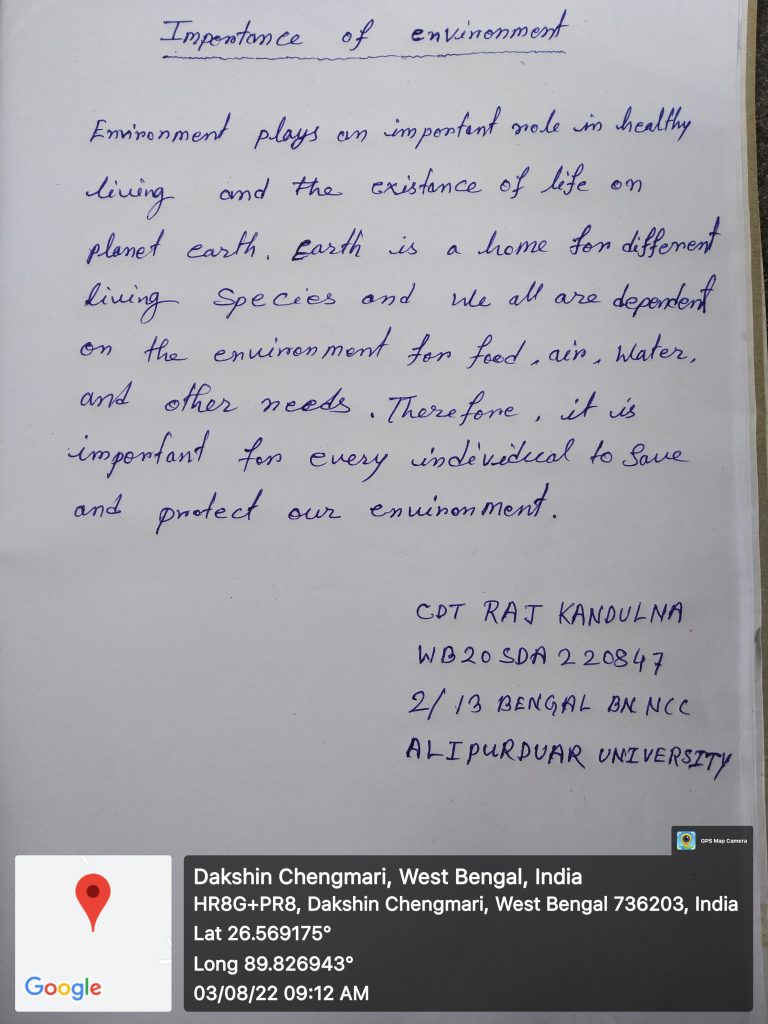 Importance of environment
Environment plays an important role in healthy
living and the existance of life on
planet earth. Earth is a home for different
living species and we all are dependent
on the environment for food, air, water,
and other needs. Therefore, it is
important for every individual to save
and protect our environment.
CDT RAJ KANDULNA
WB20SDA220847
2/13 BENGAL BN NCC
ALIPURDUAR UNIVERSITY
GPS Map Camera
Dakshin Chengmari, West Bengal, India
HR8G+PR8, Dakshin Chengmari, West Bengal 736203, India
Lat 26.569175°
Long 89.826943°
03/08/22 09:12 AM
Google